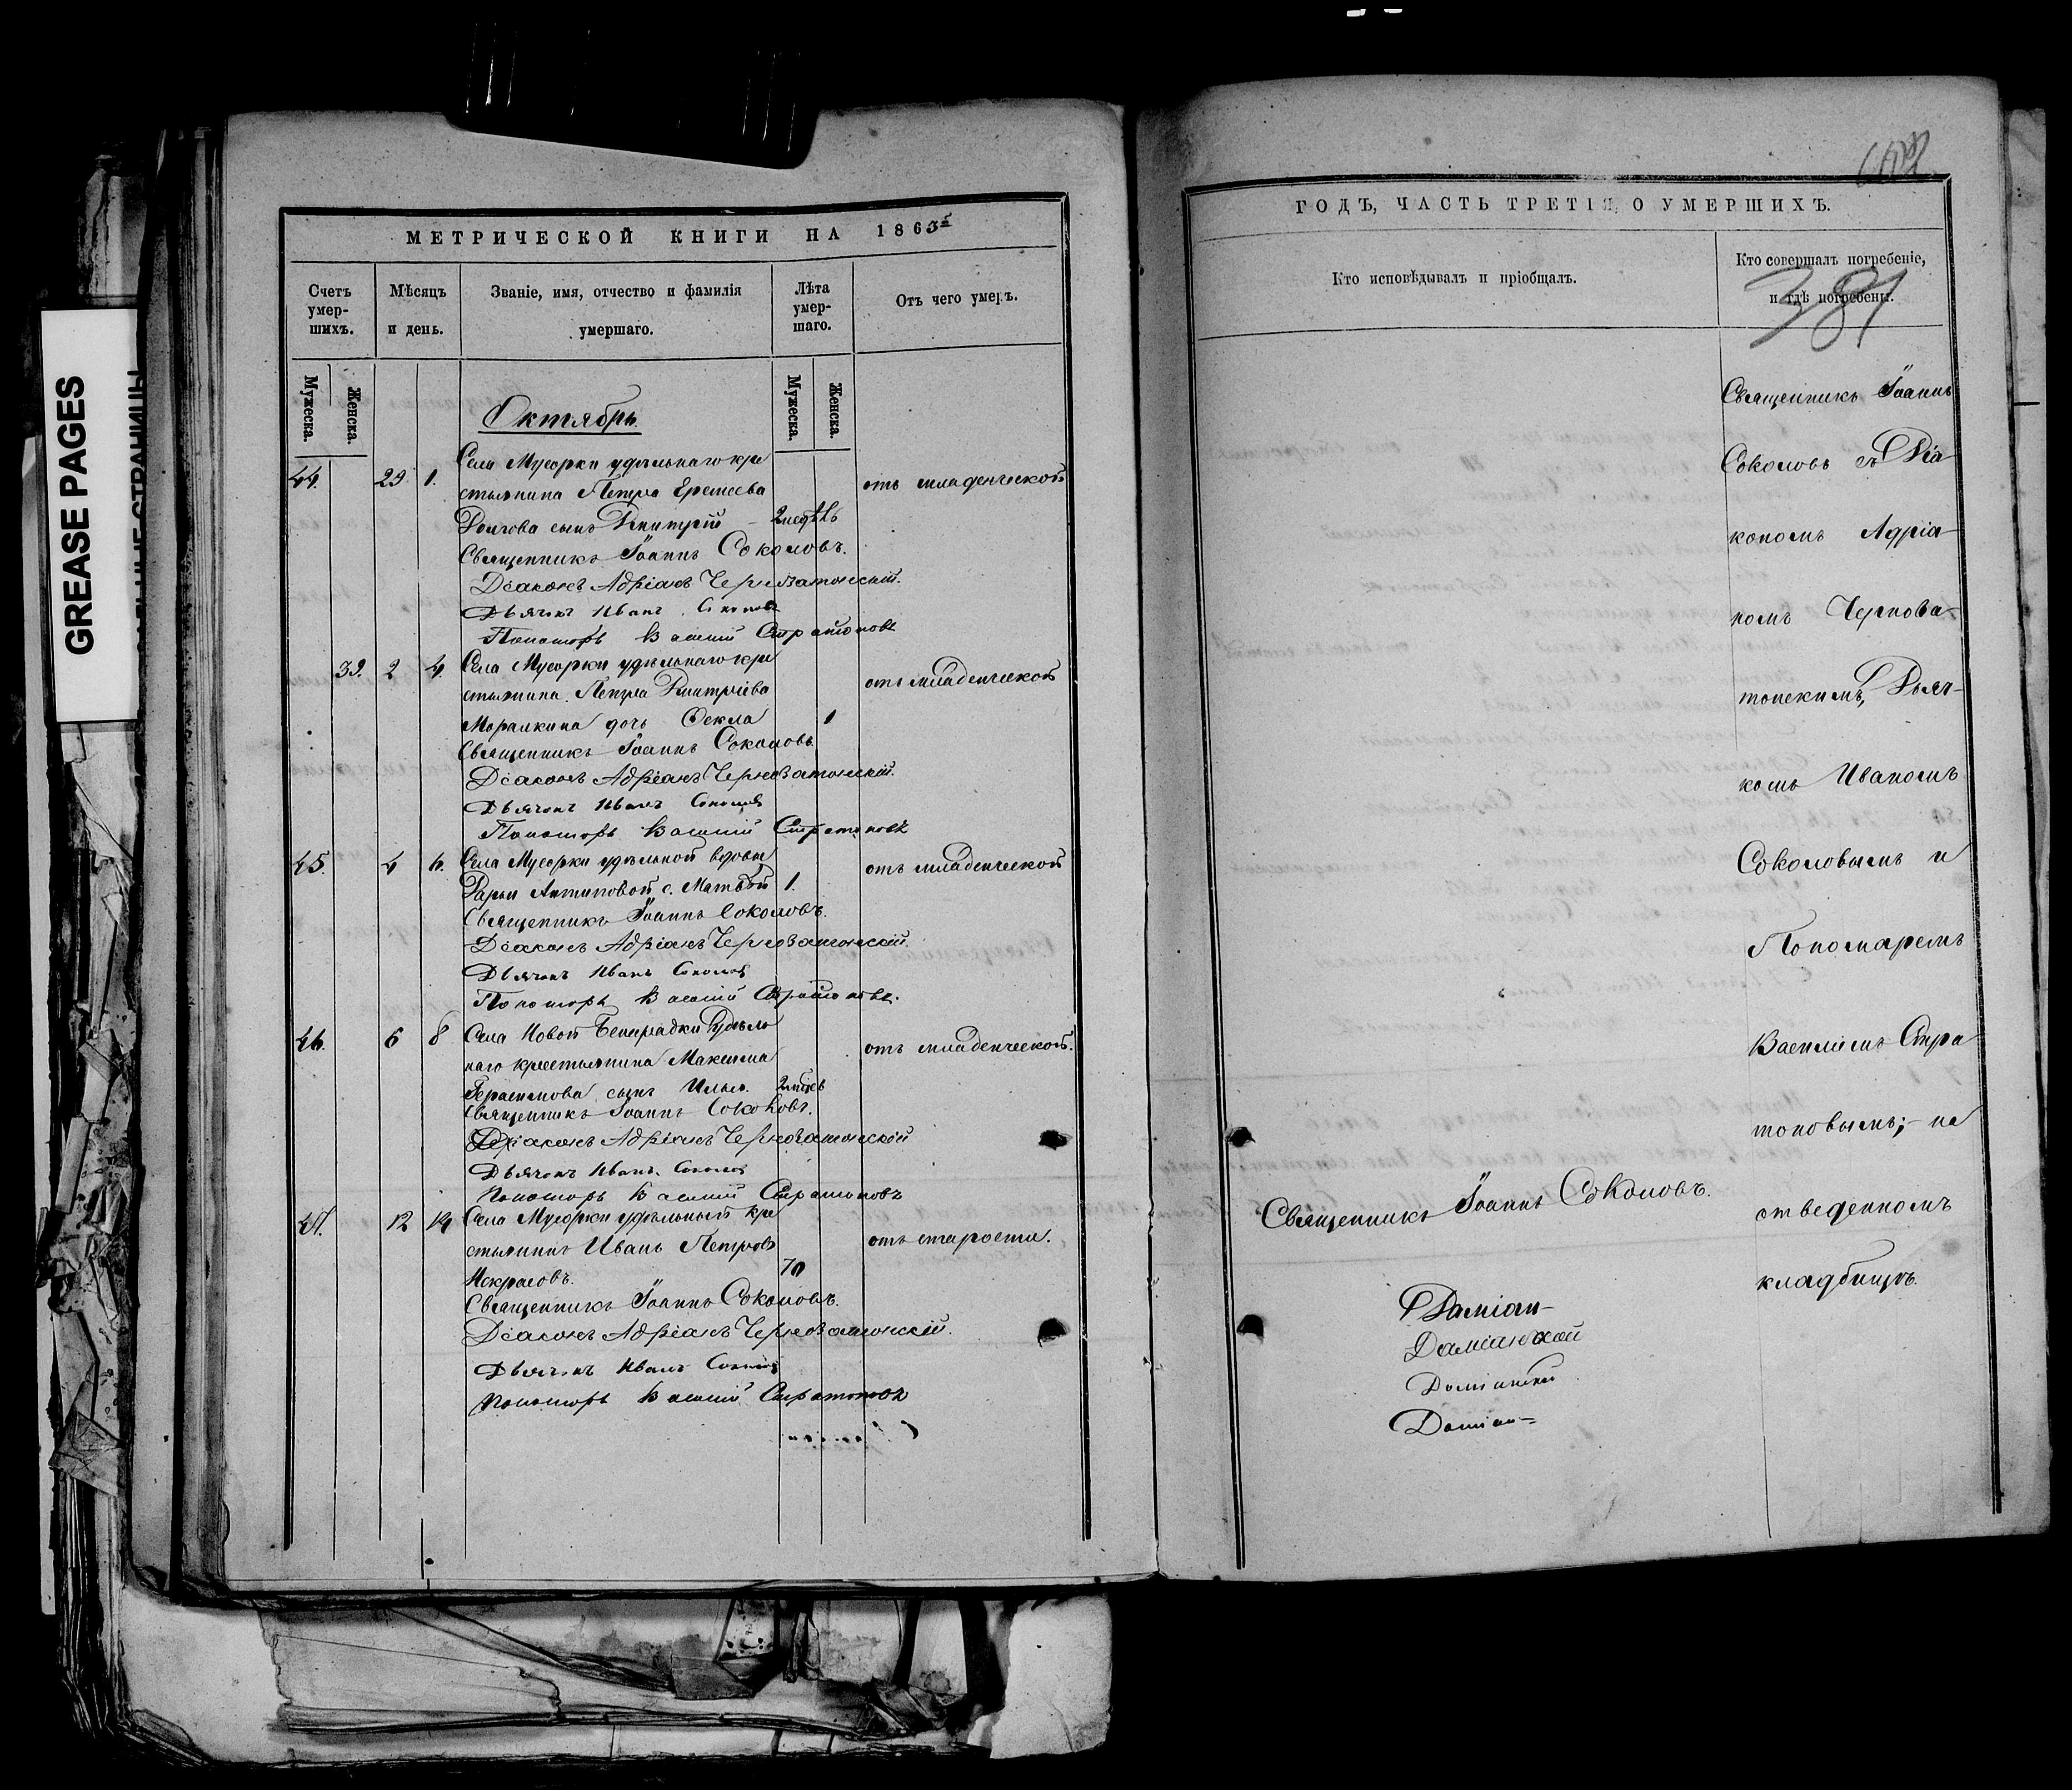 GREASE PAGES
МЕТРИЧЕСКОЙ КНИГИ НА 1865
Счетъ умер-шихъ.
Мѣсяцъ и день.
Званіе, имя, отчество и фамилія умершаго.
Лѣта умер-шаго.
Отъ чего умеръ.
Мужеска.
Женска.
Мужеска.
Женска.
Октябрь.
44. 29 1. Села Мусорки удѣльнаго кре
стьянина Петра Еремеева отъ младенческой
сынъ Дмитрій – 2 недѣль
Священникъ Іоаннъ Соколовъ.
Діаконъ Адріанъ Черноватонскій.
Дьячокъ Иванъ Соколовъ
Пономарь Василій Стратоновъ
39. 2 4. Села Мусорки удѣльнаго кре
стьянина Петра Дмитріева отъ младенческой
дочь Ѳекла 1
Священникъ Іоаннъ Соколовъ.
Діаконъ Адріанъ Черноватонскій.
Дьячокъ Иванъ Соколовъ
Пономарь Василій Стратоновъ
45. 4 6. Села Мусорки удѣльной вдовы отъ младенческой
Дарьи Антиповой с. Матвѣй 1.
Священникъ Іоаннъ Соколовъ.
Діаконъ Адріанъ Черноватонскій.
Дьячокъ Иванъ Соколовъ
Пономарь Василій Стратоновъ.
46. 6 8 Села Новой Бинарадки удѣль
наго крестьянина Максима отъ младенческой.
Герасимова сынъ Илья. 2
Священникъ Іоаннъ Соколовъ.
Діаконъ Адріанъ Черноватонскій
Дьячокъ Иванъ Соколовъ
Пономарь Василій Стратоновъ
47. 12 14 Села Мусорки удѣльный кре
стьянинъ Иванъ Петровъ отъ старости.
Некрасовъ. 70
Священникъ Іоаннъ Соколовъ.
Діаконъ Адріанъ Черноватонскій.
Дьячокъ Иванъ Соколовъ
Пономарь Василій Стратоновъ
ГОДЪ, ЧАСТЬ ТРЕТІЯ, О УМЕРШИХЪ.
Кто исповѣдывалъ и пріобщалъ.
Кто совершалъ погребеніе, и гдѣ погребены.
381
Священникъ Іоаннъ
Соколовъ съ Діа
кономъ Адріа-
номъ Чернова-
тонскимъ, Дьяч-
комъ Иваномъ
Соколовымъ и
Пономаремъ
Василіемъ Стра
тоновымъ; – на
отведенномъ
кладбищѣ.
Священникъ Іоаннъ Соколовъ.